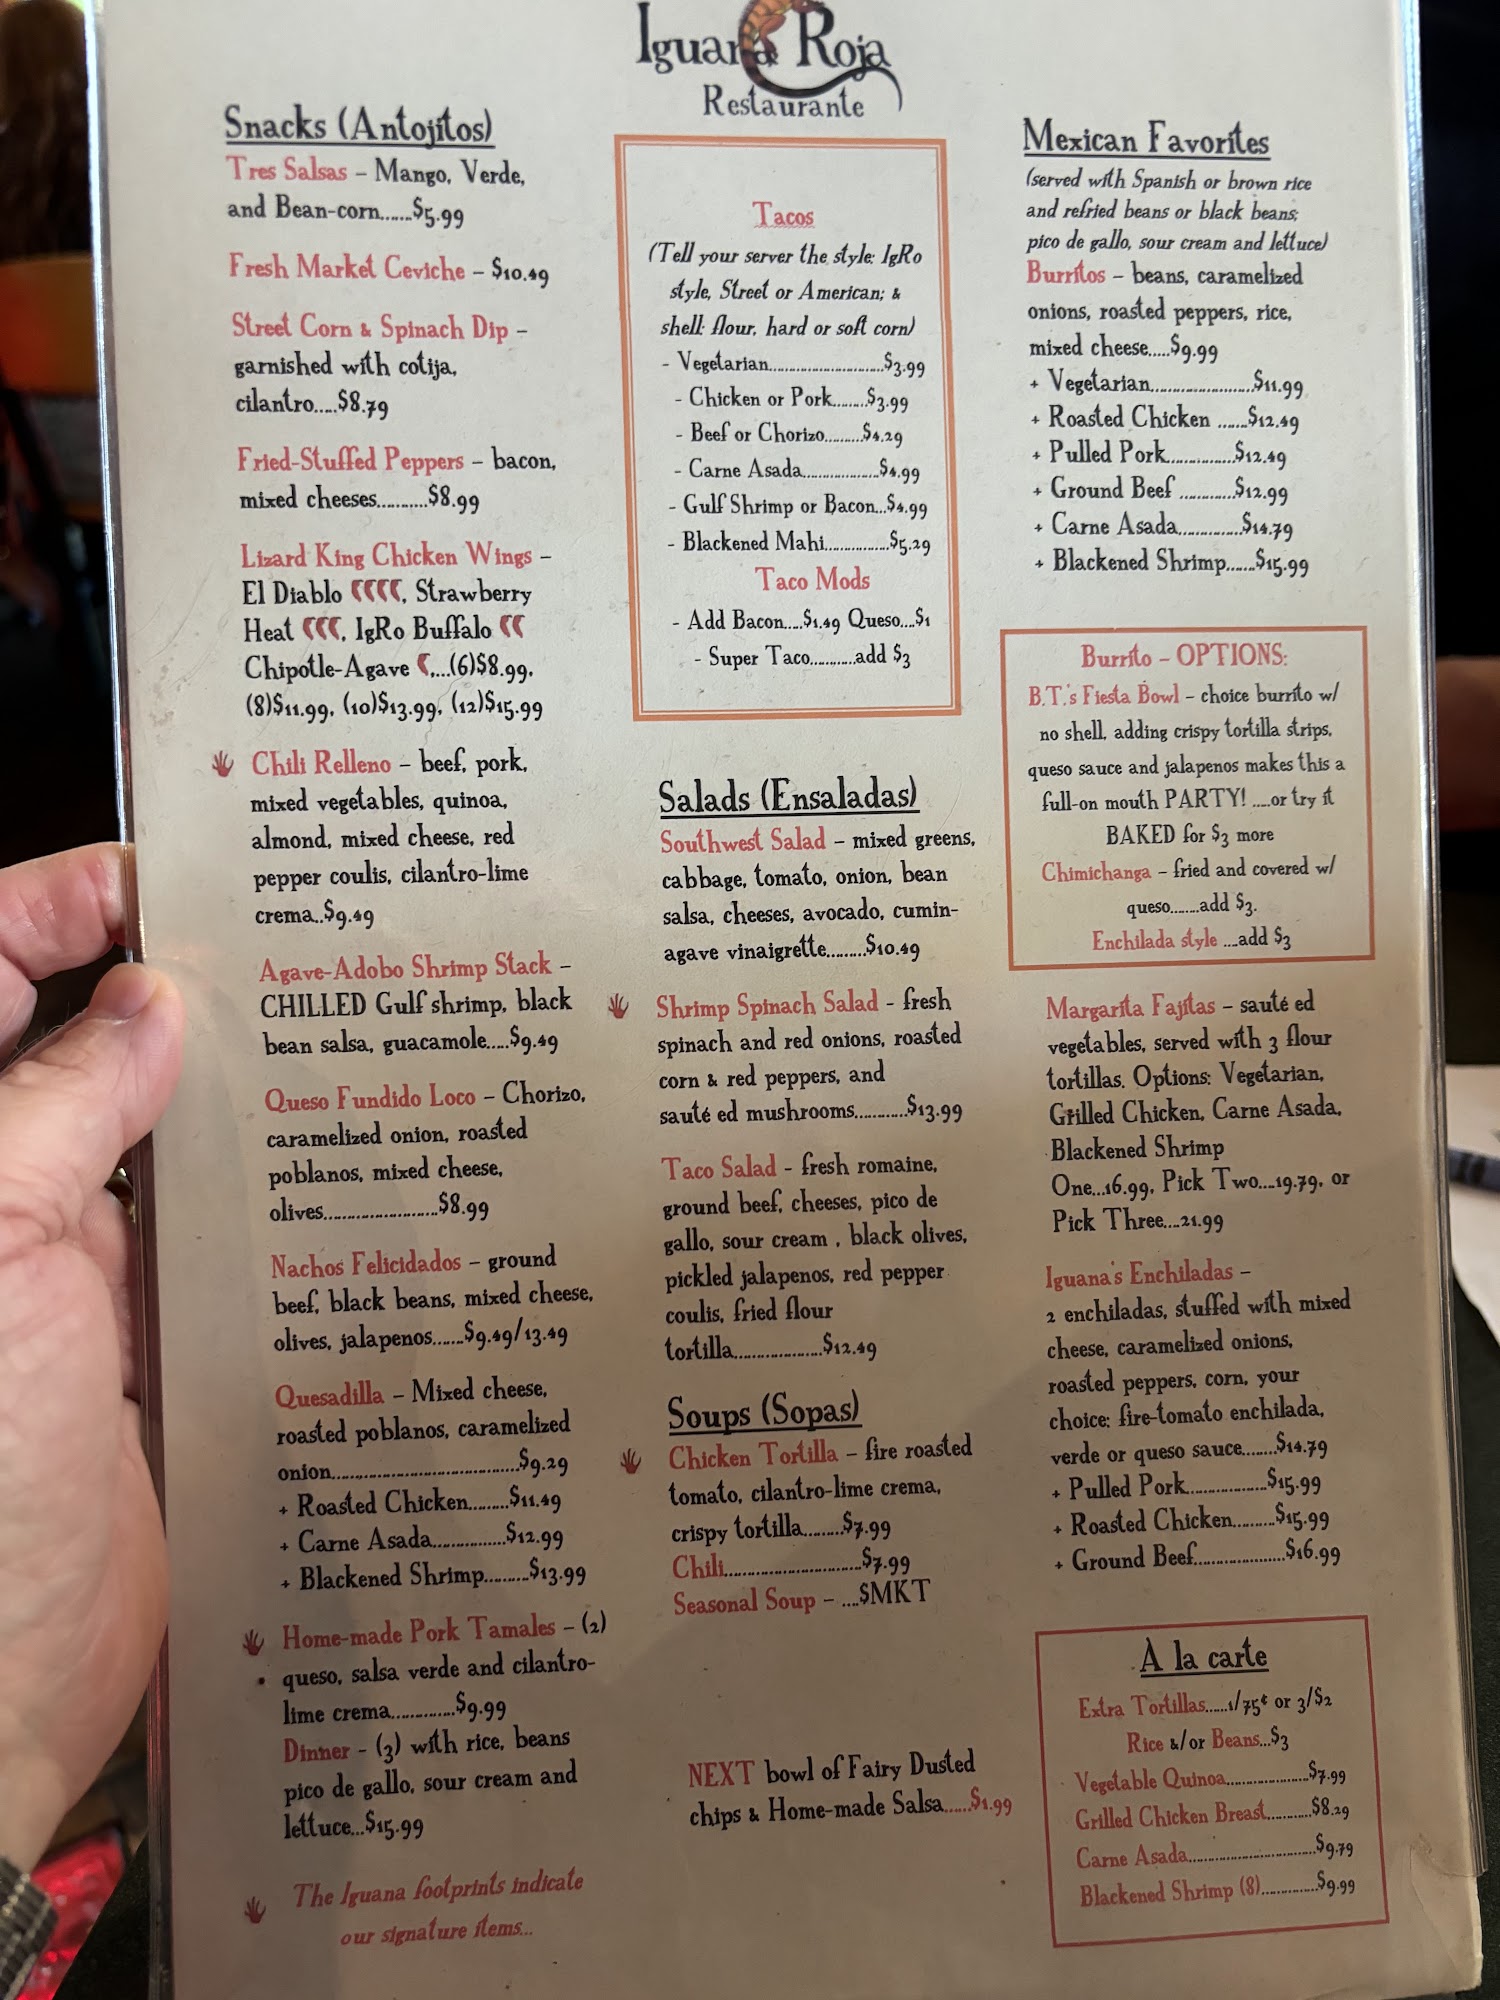 Iguana Roja
Restaurante
Snacks (Antojitos)
Tres Salsas – Mango, Verde,
and Bean-corn......$5.99
Fresh Market Ceviche – $10.49
Street Corn & Spinach Dip –
garnished with cotija,
cilantro.....$8.79
Fried-Stuffed Peppers – bacon,
mixed cheeses..........$8.99
Lizard King Chicken Wings –
El Diablo , Strawberry
Heat , IgRo Buffalo
Chipotle-Agave ....(6)$8.99,
(8)$11.99, (10)$13.99, (12)$15.99
Chili Relleno – beef, pork,
mixed vegetables, quinoa,
almond, mixed cheese, red
pepper coulis, cilantro-lime
crema..$9.49
Agave-Adobo Shrimp Stack –
CHILLED Gulf shrimp, black
bean salsa, guacamole.....$9.49
Queso Fundido Loco – Chorizo,
caramelized onion, roasted
poblanos, mixed cheese,
olives.......................$8.99
Nachos Felicidados – ground
beef, black beans, mixed cheese,
olives, jalapenos......$9.49/13.49
Quesadilla – Mixed cheese,
roasted poblanos, caramelized
onion......................................$9.29
+ Roasted Chicken........$11.49
+ Carne Asada...............$12.99
+ Blackened Shrimp.........$13.99
Home-made Pork Tamales – (2)
queso, salsa verde and cilantro-
lime crema.............$9.99
Dinner – (3) with rice, beans
pico de gallo, sour cream and
lettuce...$15.99
The Iguana footprints indicate
our signature items...
Tacos
(Tell your server the style: IgRo
style, Street or American; &
shell: flour, hard or soft corn)
- Vegetarian............................$3.99
- Chicken or Pork........$3.99
- Beef or Chorizo.........$4.29
- Carne Asada...................$4.99
- Gulf Shrimp or Bacon...$4.99
- Blackened Mahi................$5.29
Taco Mods
- Add Bacon....$1.49 Queso....$1
- Super Taco...........add $3
Salads (Ensaladas)
Southwest Salad – mixed greens,
cabbage, tomato, onion, bean
salsa, cheeses, avocado, cumin-
agave vinaigrette.........$10.49
Shrimp Spinach Salad - fresh
spinach and red onions, roasted
corn & red peppers, and
sauté ed mushrooms...........$13.99
Taco Salad - fresh romaine,
ground beef, cheeses, pico de
gallo, sour cream , black olives,
pickled jalapenos, red pepper
coulis, fried flour
tortilla..................$12.49
Soups (Sopas)
Chicken Tortilla – fire roasted
tomato, cilantro-lime crema,
crispy tortilla........$7.99
Chili............................$7.99
Seasonal Soup – ....$MKT
NEXT bowl of Fairy Dusted
chips & Home-made Salsa......$1.99
Mexican Favorites
(served with Spanish or brown rice
and refried beans or black beans;
pico de gallo, sour cream and lettuce)
Burritos – beans, caramelized
onions, roasted peppers, rice,
mixed cheese.....$9.99
+ Vegetarian.......................$11.99
+ Roasted Chicken ......$12.49
+ Pulled Pork..............$12.49
+ Ground Beef ............$12.99
+ Carne Asada.............$14.79
+ Blackened Shrimp......$15.99
Burrito – OPTIONS:
B.T.'s Fiesta Bowl – choice burrito w/
no shell, adding crispy tortilla strips,
queso sauce and jalapenos makes this a
full-on mouth PARTY! .....or try it
BAKED for $3 more
Chimichanga – fried and covered w/
queso.......add $3.
Enchilada style ....add $3
Margarita Fajitas – sauté ed
vegetables, served with 3 flour
tortillas. Options: Vegetarian,
Grilled Chicken, Carne Asada,
Blackened Shrimp
One...16.99, Pick Two....19.79, or
Pick Three....21.99
Iguana's Enchiladas –
2 enchiladas, stuffed with mixed
cheese, caramelized onions,
roasted peppers, corn, your
choice: fire-tomato enchilada,
verde or queso sauce.......$14.79
+ Pulled Pork.................$15.99
+ Roasted Chicken.........$15.99
+ Ground Beef...................$16.99
A la carte
Extra Tortillas......1/75¢ or 3/$2
Rice &/or Beans...$3
Vegetable Quinoa.....................$7.99
Grilled Chicken Breast...........$8.29
Carne Asada................................$9.79
Blackened Shrimp (8)..............$9.99